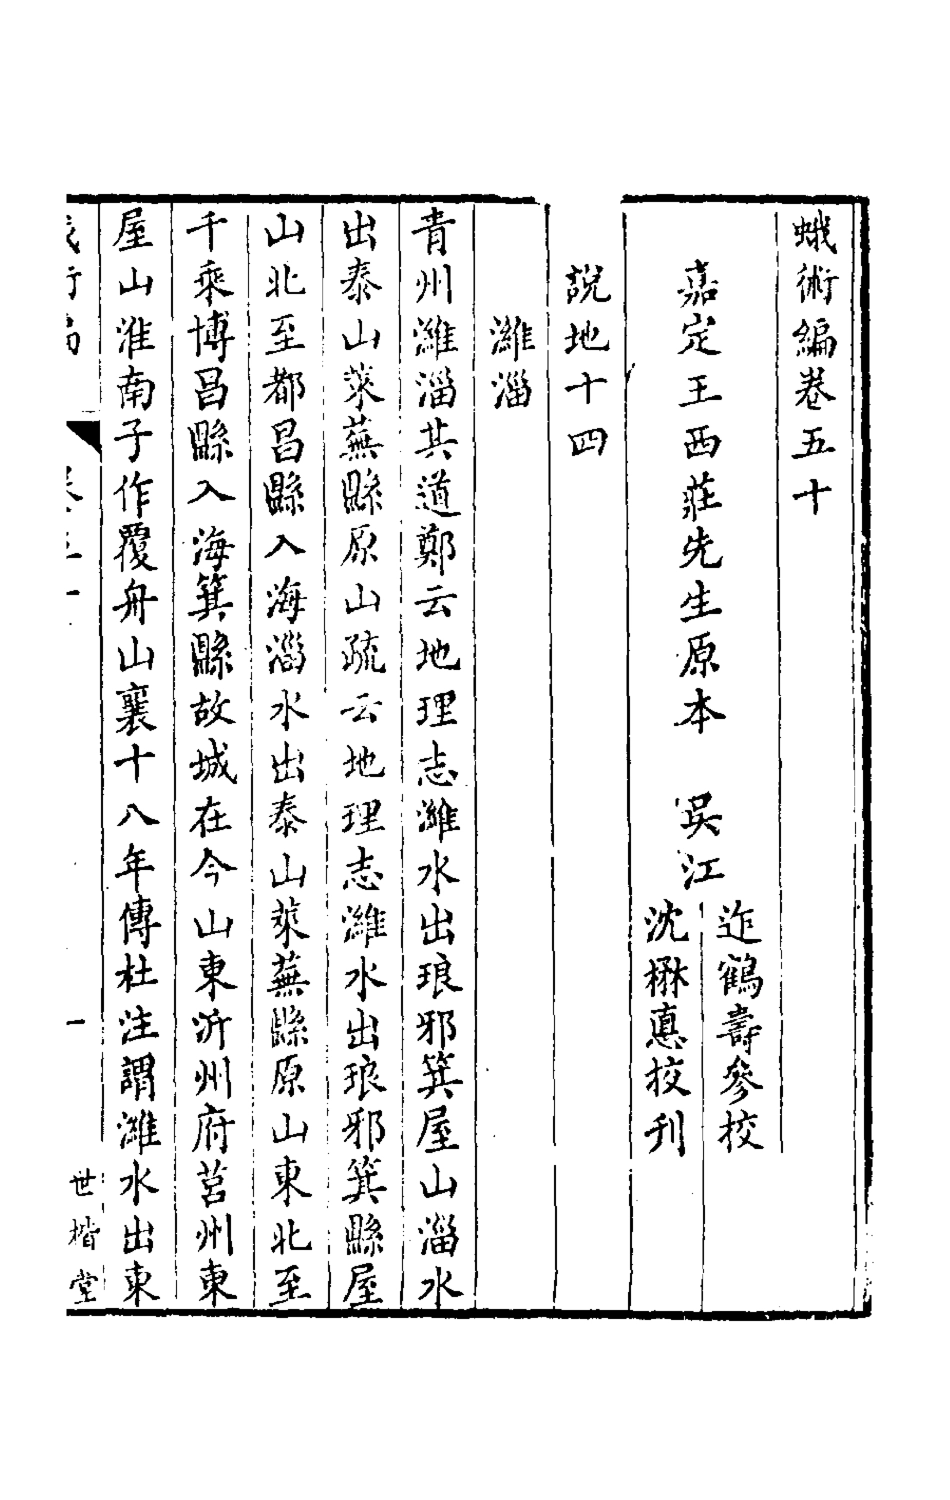 蛾術編卷五十
嘉定王西莊先生原本　吳江
迮鶴壽參校
沈楙悳挍刊
說地十四
濰淄
青州濰淄其道鄭云地理志濰水出琅邪箕屋山淄水
出泰山萊蕪縣原山疏云地理志濰水出琅邪箕縣屋
山北至都昌縣入海淄水出泰山萊蕪縣原山東北至
千乘博昌縣入海箕縣故城在今山東沂州府莒州東
屋山淮南子作覆舟山襄十八年傳杜注謂濰水出東
一
世楷堂